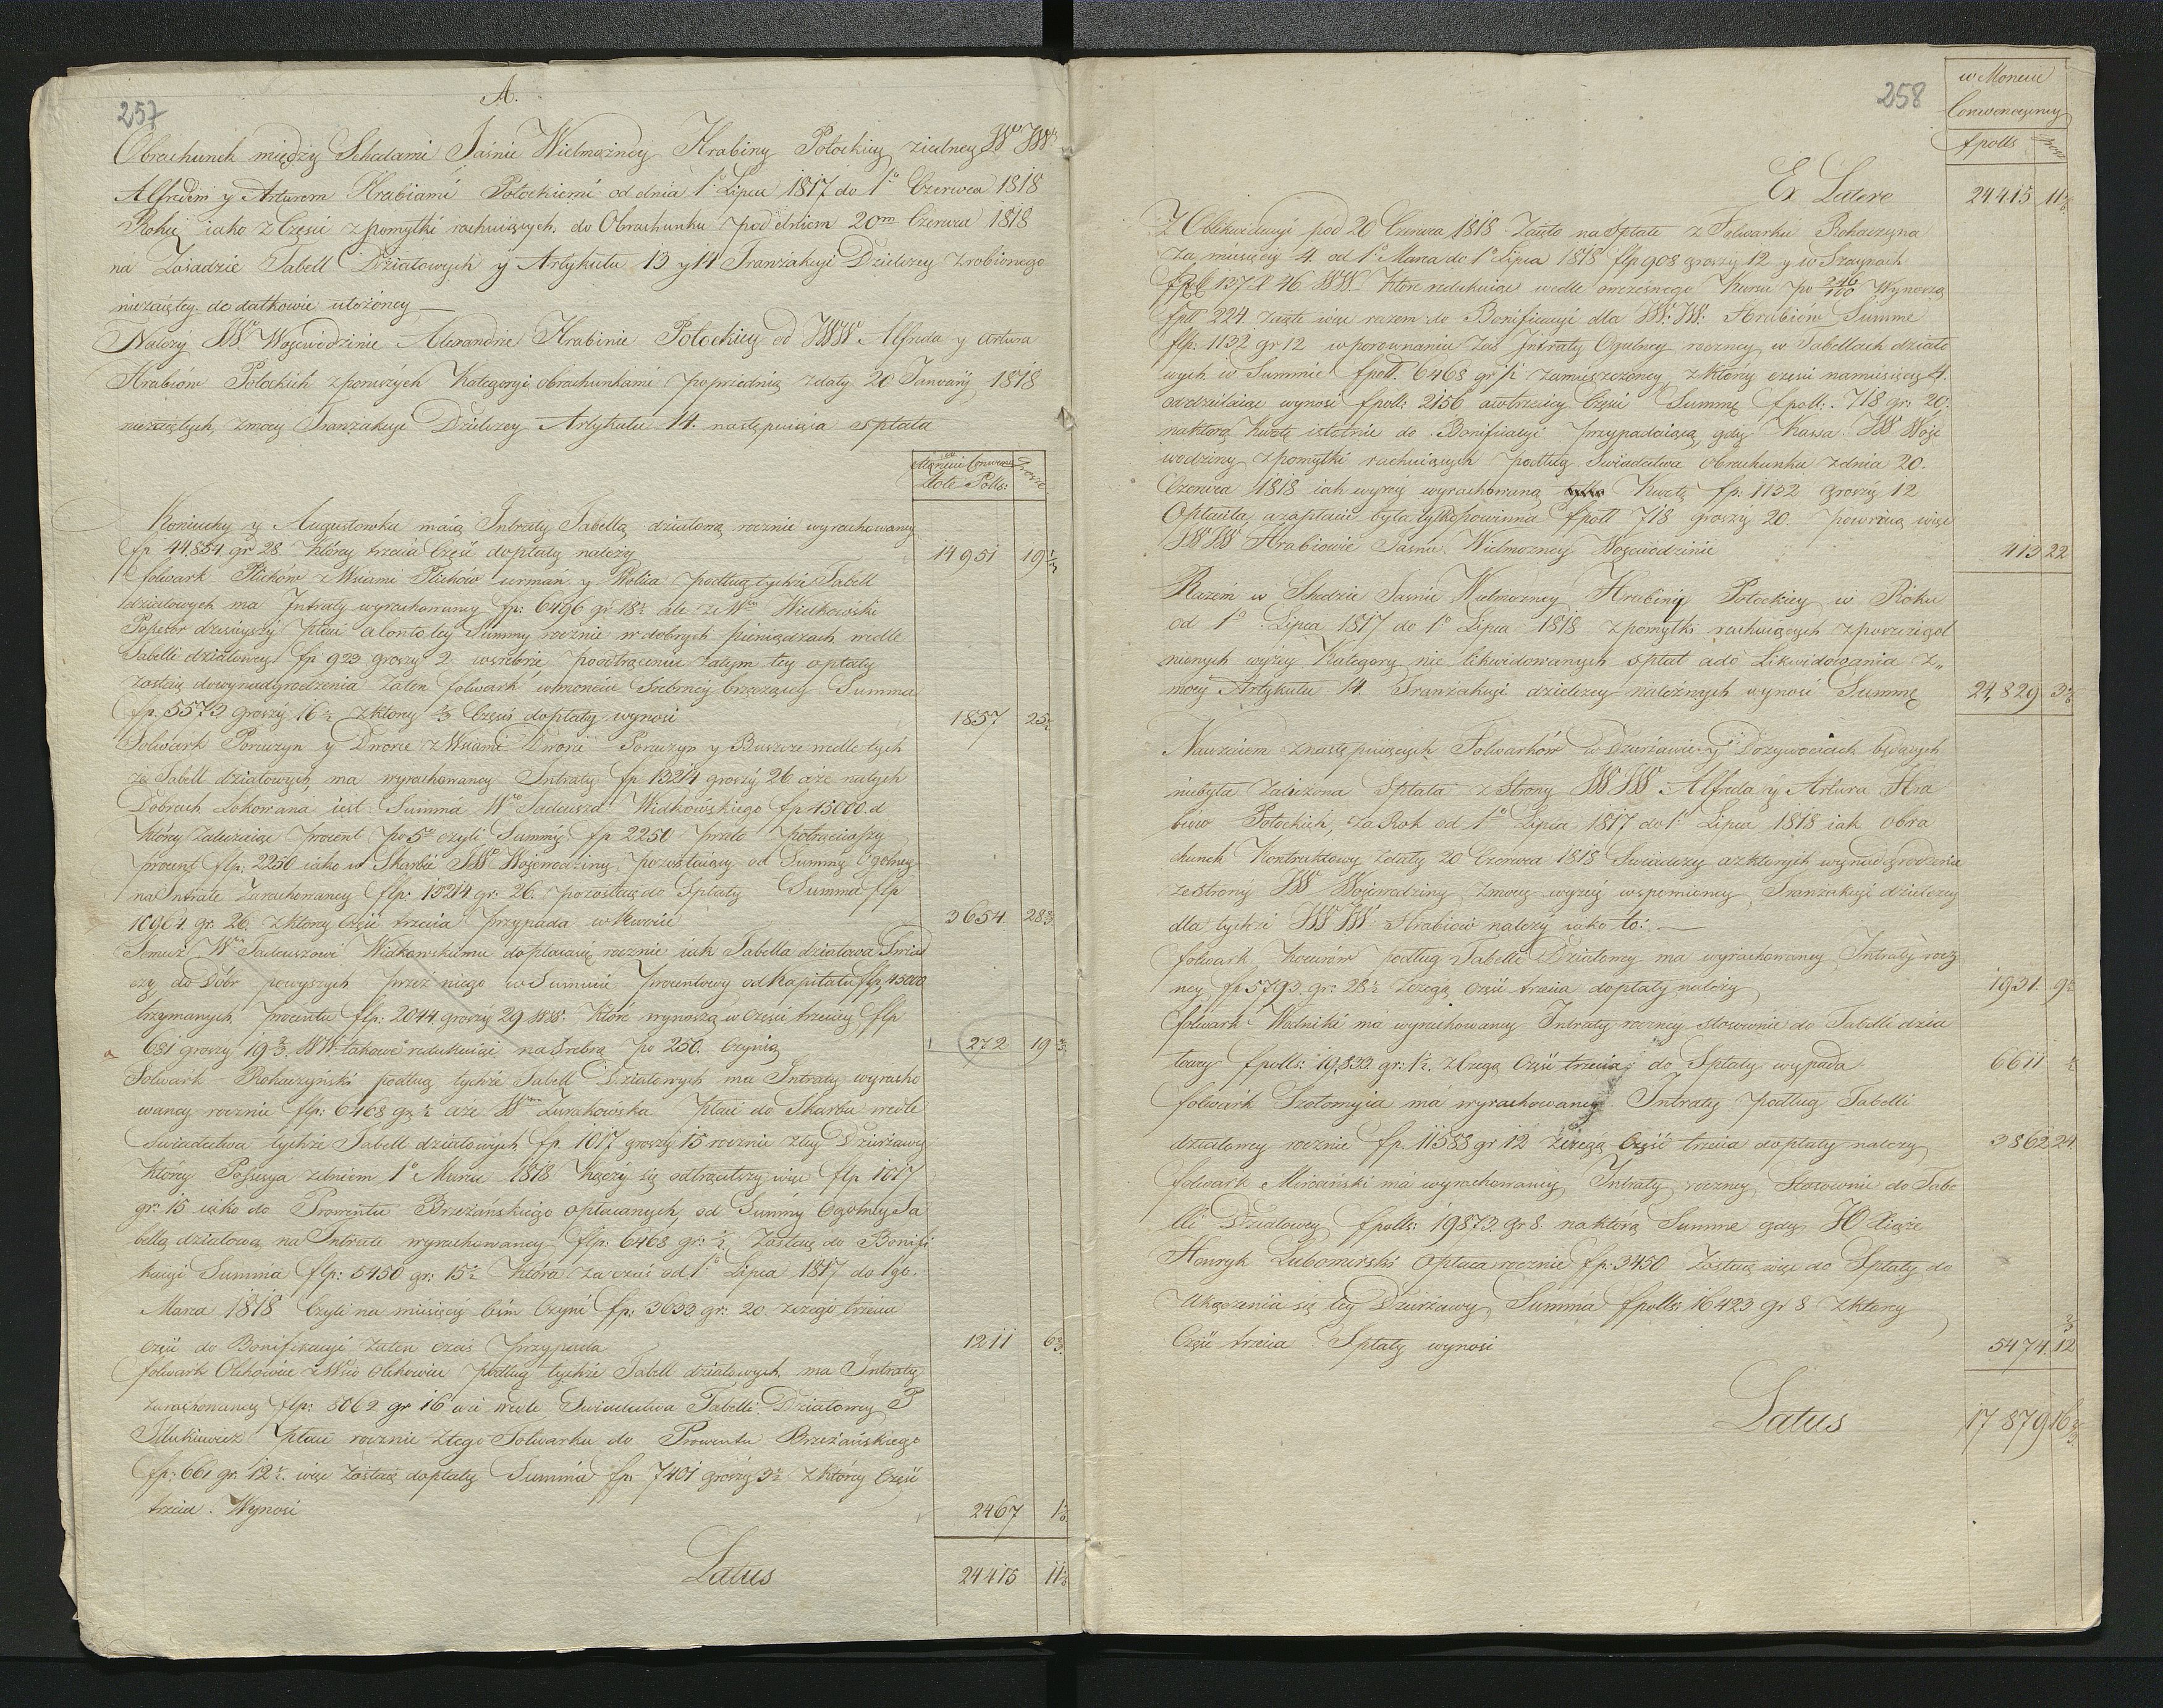 257
A.
Obrachunek między Schedami Jaśnie Wielmożney Hrabiny Potockiey z iedney JW JWW
Alfredem y Arturem Hrabiami Potockiemi od dnia 1º Lipca 1817 do 1º Czerwca 1818
Roku iako z Części z pomyłki rachuiących do Obrachunku pod dniem 20m Czerwca 1818
na Zasadzie Tabell Działowych y Artykułu 13 y 14 Tranzakcyi Dzielczey zrobionego
niezaiętey dodatkowie ułożoney
Należy JW Woiewodzinie Alexandrie Hrabinie Potockiey od JWW Alfreda y Artura
Hrabiów Potockich z poniższych Kategoryi obrachunkami poprzednią z daty 20 January 1818
niezaiętych, z mocy Tranzakcyi Dzielczey Artykułu 14. następuiąca spłata
w Monecie Conwenc
złote Polls: Grosze
Koniuchy y Augustowka maią Intraty Tabellą działową rocznie wyrachowaney
fp 44854 gr 28 którey trzecia Część dopłaty należy 14951 19 1/3
folwark Plichów z Wsiami Plichów urmań y Wolica podług tychże Tabell
działowych ma Intraty wyrachowaney fp: 6496 gr 18½ ale że Wny Widkowski
Possesor dzisieyszy płaci a Conto tey Summy rocznie w dobrych pieniądzach wedle
Tabelli działowey fp 923 groszy 2 w srebrze poodtrąceniu zatym tey opłaty
zostaie dowynadgrodzenia zaten folwark w monecie Srebrney brzęczącey Summa
fp. 5573 groszy 16½ z ktorey ⅓ Część dopłaty wynosi 1857 25½
Folwark Poruczyn y Dworce z Wsiami Dworce Poruczyn y Buszcze wedle tych
że Tabell działowych, ma wyrachowaney Intraty fp 13214 groszy 26 a że na tych
Dobrach Lokowana iest Summa Wo Tadeusza Widkowskiego fp 45000 d
którey należaiąc procent po 5 czyli Summy fp 2250 przeto potrąciwszy
procent flp: 2250 iako w Skarbie JW Woiewodziny pozostaiący od Summy Ogolney
na Intratę Zarachowaney flp: 13214 gr: 26. pozostaie do Spłaty Summa flp
10964. gr. 26. z ktorey część trzecia przypada w Kwocie 3654. 28⅔.
Temuż Wu Tadeuszowi Widkowskiemu dopłacaią rocznie iak Tabella działowa Świad
czy do Dóbr powyższych przez niego w Summie procentowey od Kapitału flp 45000
trzymanych procentu flp: 2044 groszy 29 WW. które wynoszą w części trzeciey flp
681 groszy 19⅔. WW takowe redukuiąc na Srebro po 250. Czynią 272 19
Folwark Rohaczyński podług tychże Tabell Działowych ma Intraty wyracho
waney rocznie flp: 6468 gr ½ a że Wna Zurakowska płaci do Skarbu wedle
świadectwa tychże Tabell działowych fp. 1017 groszy 15 rocznie z tey Dzierżawy
którey Possesya z dniem 1º Marca 1818 kączy się odtrąciwszy więc flp 1017
gr: 15 iako do Prowentu Brzeżańskiego opłacanych, od Summy Ogolney Ta
bellą działową na Intratę wyrachowaney flp: 6468 gr: ½ Zostaie do Bonifi
kacyi Summa flp: 5450 gr: 15½ która za czas od 1º Lipca 1817 do 1go
Marca 1818 Czyli na miesięcy 8m Czyni fp: 3633 gr: 20 z czego trzecia
część do Bonifikacyi zaten czas przypada 1211 6⅔.
folwark Olchowiec z Wsią Olchowiec podług tychże Tabell działowych ma Intraty
zarachowaney flp: 8062 gr 16 a że wedle Świadectwa Tabelli Działowey P
płaci rocznie z tego Folwarku do Prowentu Brzeżańskiego
fp: 661 gr. 12½. więc zostaie dopłaty Summa fp 7401 groszy 3½ z którey Część
trzecia. Wynosi 2467 1
Latus 24415 11⅓
258
w Monecie
Conwencyiney
fpolls grosz
Ex Latere 24415 11
Z Oblikwidacyi pod 20 Czerwca 1818. Zaięto na Spłatę z Folwarku Rohaczyna
za miesięcy 4. od 1º Marca do 1º Lipca 1818 flp 908 groszy 12 y w Szaynach
fpll 137 46. WW. które redukuiąc wedle onczesnego Kursu po 246/100 Wynoszą
fpll 224. zaięte więc razem do Bonifikacyi dla JW: JW: Hrabiow Summę
flp: 1132 gr 12 w porownaniu zaś Intraty Ogulney roczney w Tabellach działo
wych w Summie fpoll. 6468 gr ½ zamieszczoney, z ktorey części na miesięcy 4.
oddzielaiąc wynosi fpoll: 2156 a w trzeciey Części Summę fpoll: 718 gr: 20.
na którą Kwotę istotnie do Bonifikacyi przypadaiącą, gdy Kassa JW Woje
wodziny z pomyłki rachuiących podług świadectwa Obrachunku z dnia 20.
Czerwca 1818 iak wyżey wyrachowaną Kwotę fp: 1132 groszy 12
Opłaciła, a zapłacić była tylko powinna fpoll 718 groszy 20. powrócą więc
JW JW Hrabiowie Jaśnie Wielmożney Woiewodzinie 413 22
Razem w Schedzie Jaśnie Wielmożney Hrabiny Potockiey w Roku
od 1º Lipca 1817 do 1º Lipca 1818 z pomyłki rachuiących z poszczegól
nionych wyżey Kategory nie likwidowanych spłat a do Likwidowania z„
mocy Artykułu 14. Tranzakcyi dzielczey należnych wynosi Summę 24,829 3
Nawzaiem z następuiących Folwarków w Dzierżawie y Dożywociach będących
niebyła zaliczona Spłata z Strony JW JW Alfreda y Artura Hra
biow Potockich, za Rok od 1º Lipca 1817 do 1º Lipca 1818 iak obra
chunek Kontraktowy z daty 20 Czerwca 1818 Swiadczy a z ktorych wynadgrodzenia
ze strony JW Woiewodziny z mocy wyżey wspomioney Tranzakcyi dzielczey
dla tychże JW JW: Hrabiow należy iako to:
folwark podług Tabelli Działowey ma wyrachowaney Intraty rocz
ney fp 5793. gr: 28½ z czego część trzecia dopłaty należy 1931. 9½
folwark Wodniki ma wyrachowaney Intraty roczney stosownie do Tabelli dzia
łowey fpolls: 19,833. gr: 1½. z czego Część trzecia do Spłaty wypada 6611 ½
folwark Szołomyia ma wyrachowaney Intraty podług Tabelli
działowey rocznie fp. 11588 gr 12 z czego Część trzecia dopłaty należy 3862 24.
folwark ma wyrachowaney Intraty roczney Stosownie do Tabe
lli Działowey fpolls: 19873. gr 8. na którą Summę gdy JO Xiąże
Henryk Lubomirski opłaca rocznie fp: 3450 Zostaie więc do Spłaty do
Ukączenia się tey Dzierżawy Summa fpolls: 16423 gr 8 z ktorey
Część trzecia Spłaty wynosi 5474 12⅔
Latus 17 879 16